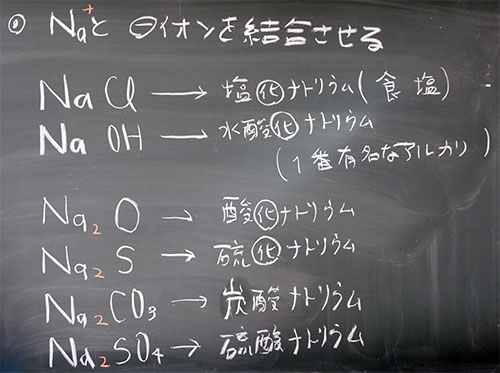 ◎ Na⁺と⊖イオンを結合させる
NaCl → 塩化ナトリウム(食塩)
NaOH → 水酸化ナトリウム
(1番有名なアルカリ)
Na₂O → 酸化ナトリウム
Na₂S → 硫化ナトリウム
Na₂CO₃ → 炭酸ナトリウム
Na₂SO₄ → 硫酸ナトリウム